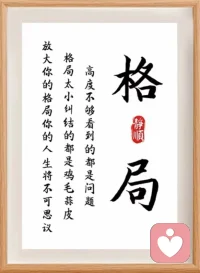 格局
静顺
高度不够看到的都是问题
格局太小纠结的都是鸡毛蒜皮
放大你的格局你的人生将不可思议